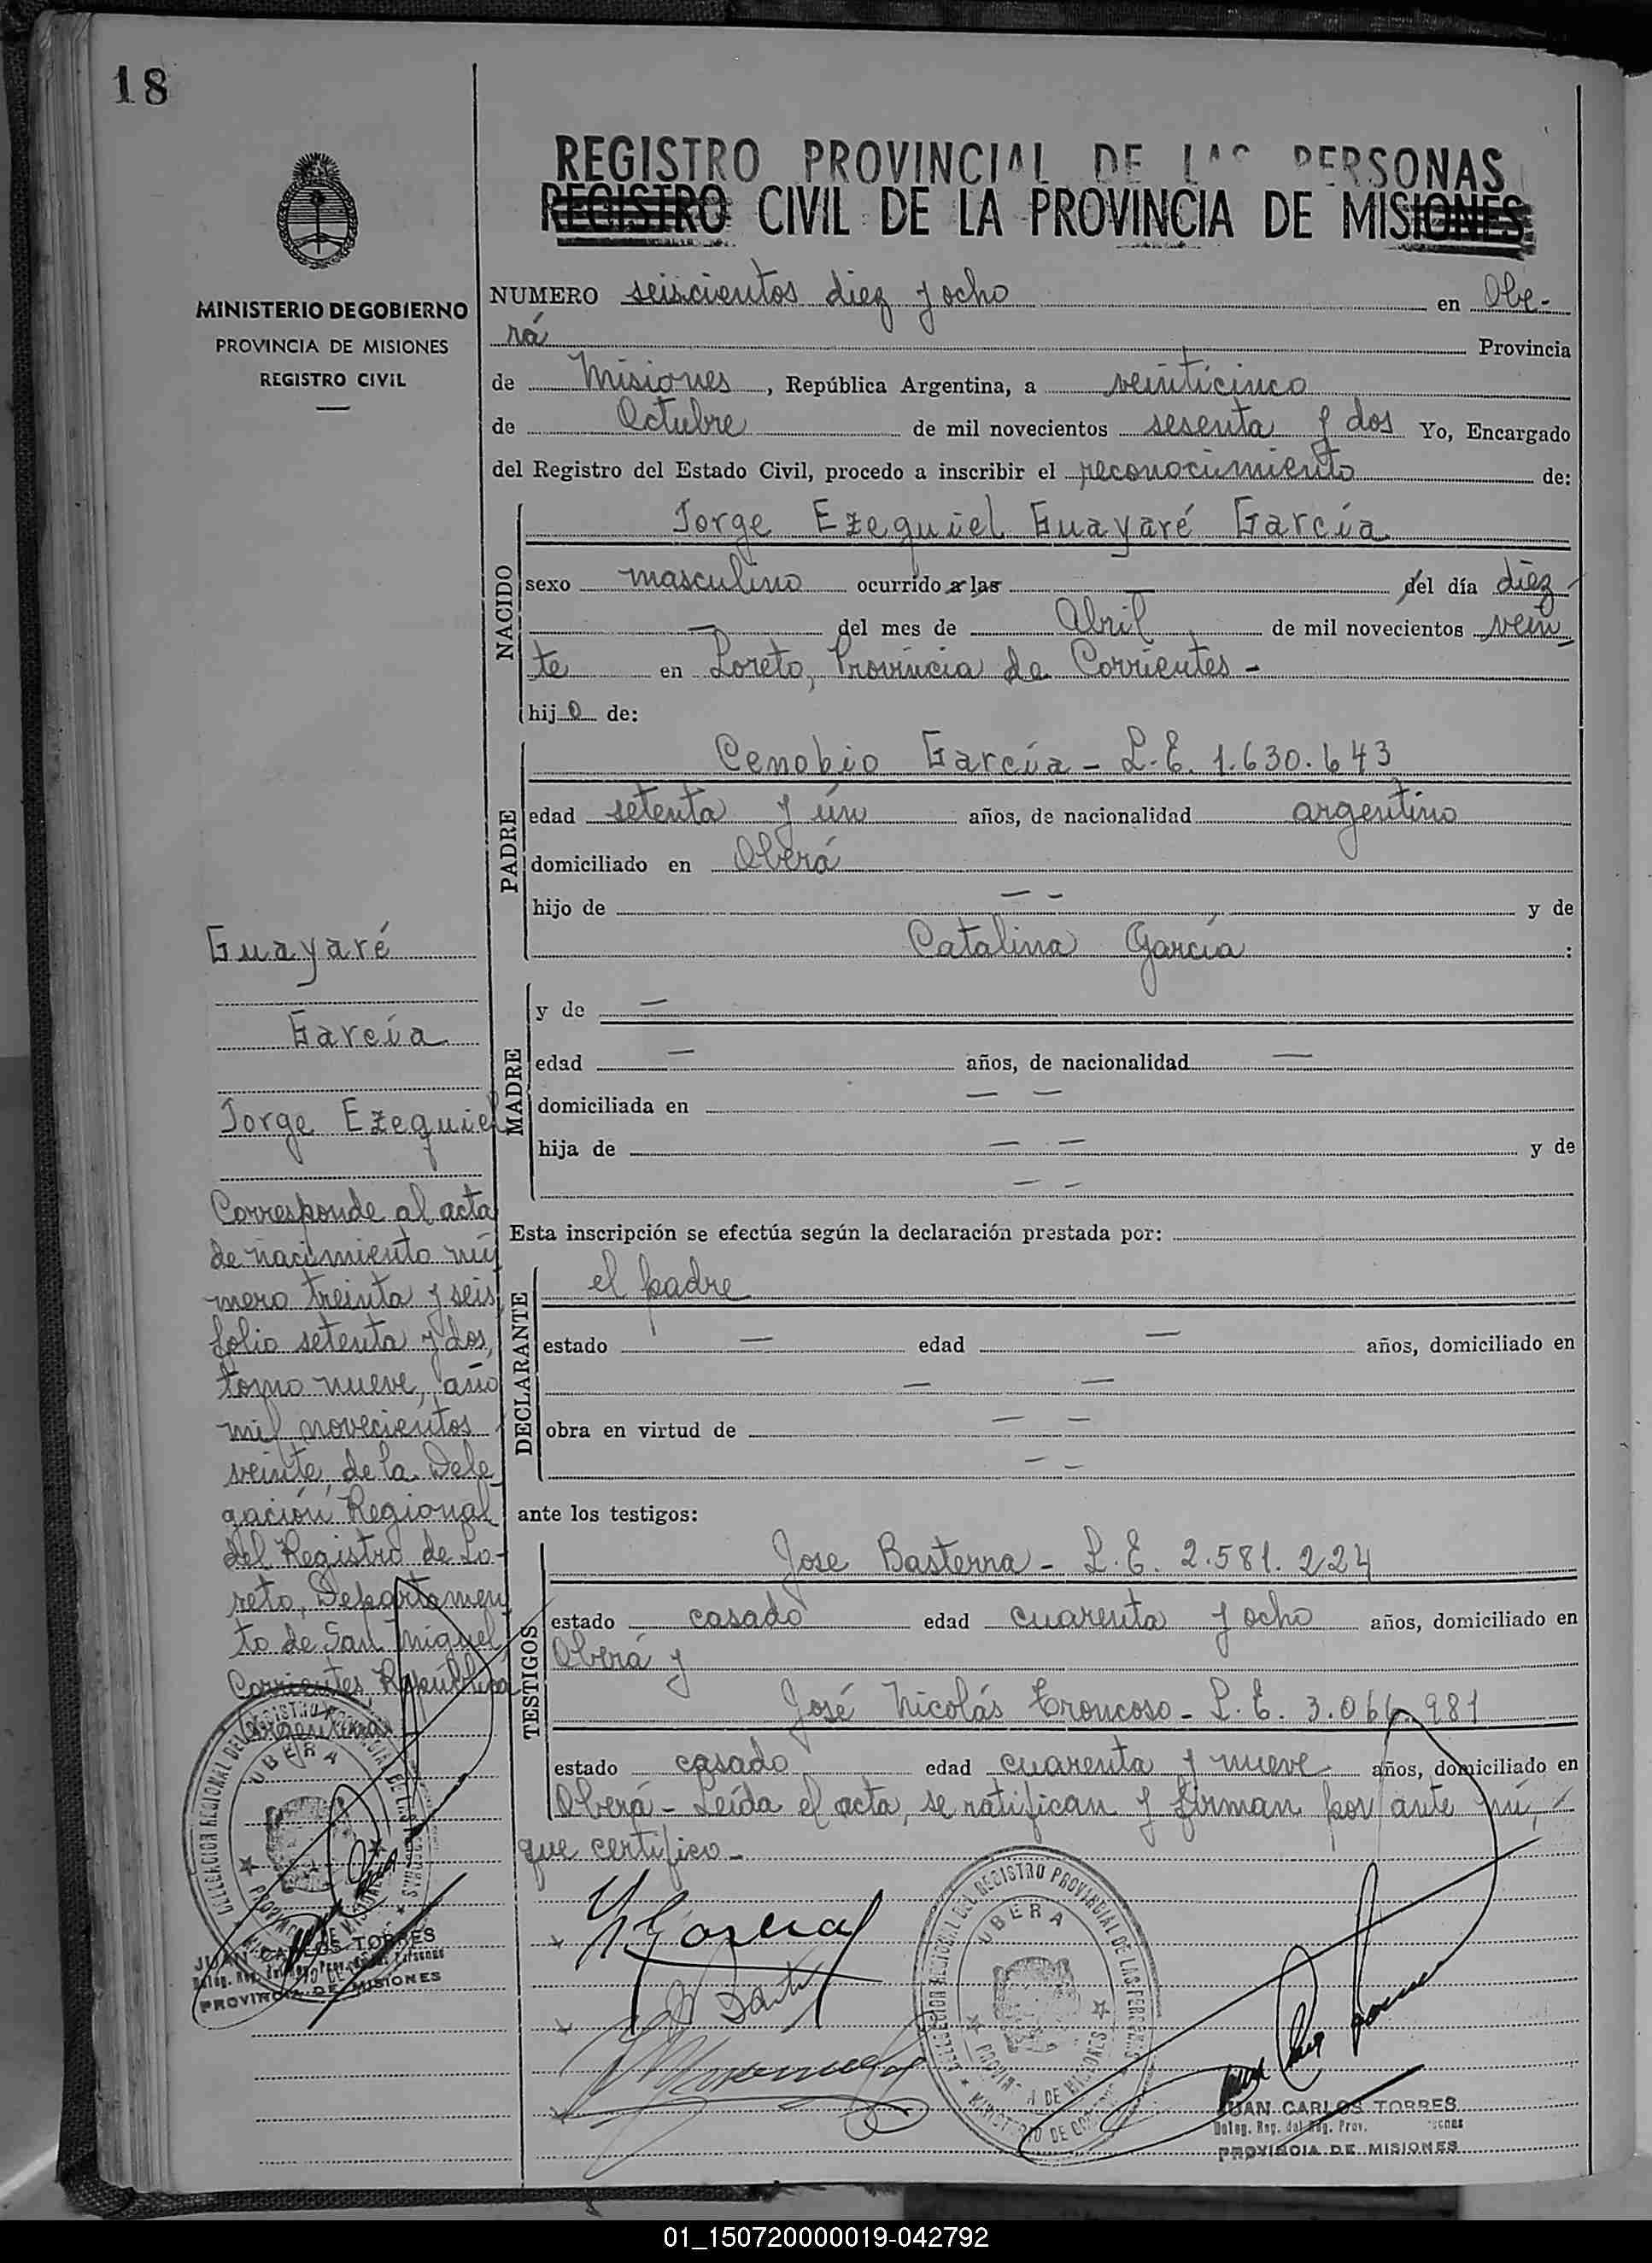 18
REGISTRO PROVINCIAL DE LAS PERSONAS
REGISTRO CIVIL DE LA PROVINCIA DE MISIONES
MINISTERIO DE GOBIERNO
PROVINCIA DE MISIONES
REGISTRO CIVIL
NUMERO seiscientos diez y ocho en Obe-
rá Provincia
de Misiones, República Argentina, a veinticinco
de Octubre de mil novecientos sesenta y dos Yo, Encargado
del Registro del Estado Civil, procedo a inscribir el reconocimiento de:
NACIDO
Jorge Ezequiel Guayaré García
sexo masculino ocurrido a las — del día diez
— del mes de Abril de mil novecientos vein
te en Loreto, Provincia de Corrientes -
hijo de:
PADRE
Cenobio García - L.E. 1.630.643
edad setenta y ún años, de nacionalidad argentino
domiciliado en Oberá
hijo de — — y de
Catalina García :
MADRE
y de —
edad — años, de nacionalidad —
domiciliada en — —
hija de — — y de
— —
Esta inscripción se efectúa según la declaración prestada por:
DECLARANTE
el padre
estado — edad — años, domiciliado en
— —
obra en virtud de — —
— —
ante los testigos:
TESTIGOS
Jose Basterna - L.E. 2.581.224
estado casado edad cuarenta y ocho años, domiciliado en
Oberá y
José Nicolás Troncoso - L.E. 3.066.981
estado casado edad cuarenta y nueve años, domiciliado en
Oberá - Leída el acta, se ratifican y firman por ante mí,
que certifico -
Guayaré
García
Jorge Ezequiel
Corresponde al acta
de nacimiento nú
mero treinta y seis
folio setenta y dos,
tomo nueve, año
mil novecientos
veinte, de la Dele
gación Regional
del Registro de Lo-
reto, Departamen
to de San Miguel
Corrientes, República
Argentina
DELEGACION REGIONAL DEL REGISTRO PROVINCIAL DE LAS PERSONAS
OBERA
PROVINCIA DE MISIONES
MINISTERIO DE GOBIERNO
JUAN CARLOS TORRES
PROVINCIA DE MISIONES
DELEGACION REGIONAL DEL REGISTRO PROVINCIAL DE LAS PERSONAS
OBERA
PROVINCIA DE MISIONES
MINISTERIO DE GOBIERNO
JUAN CARLOS TORRES
Deleg. Reg. del Reg. Prov.
PROVINCIA DE MISIONES
01_150720000019-042792